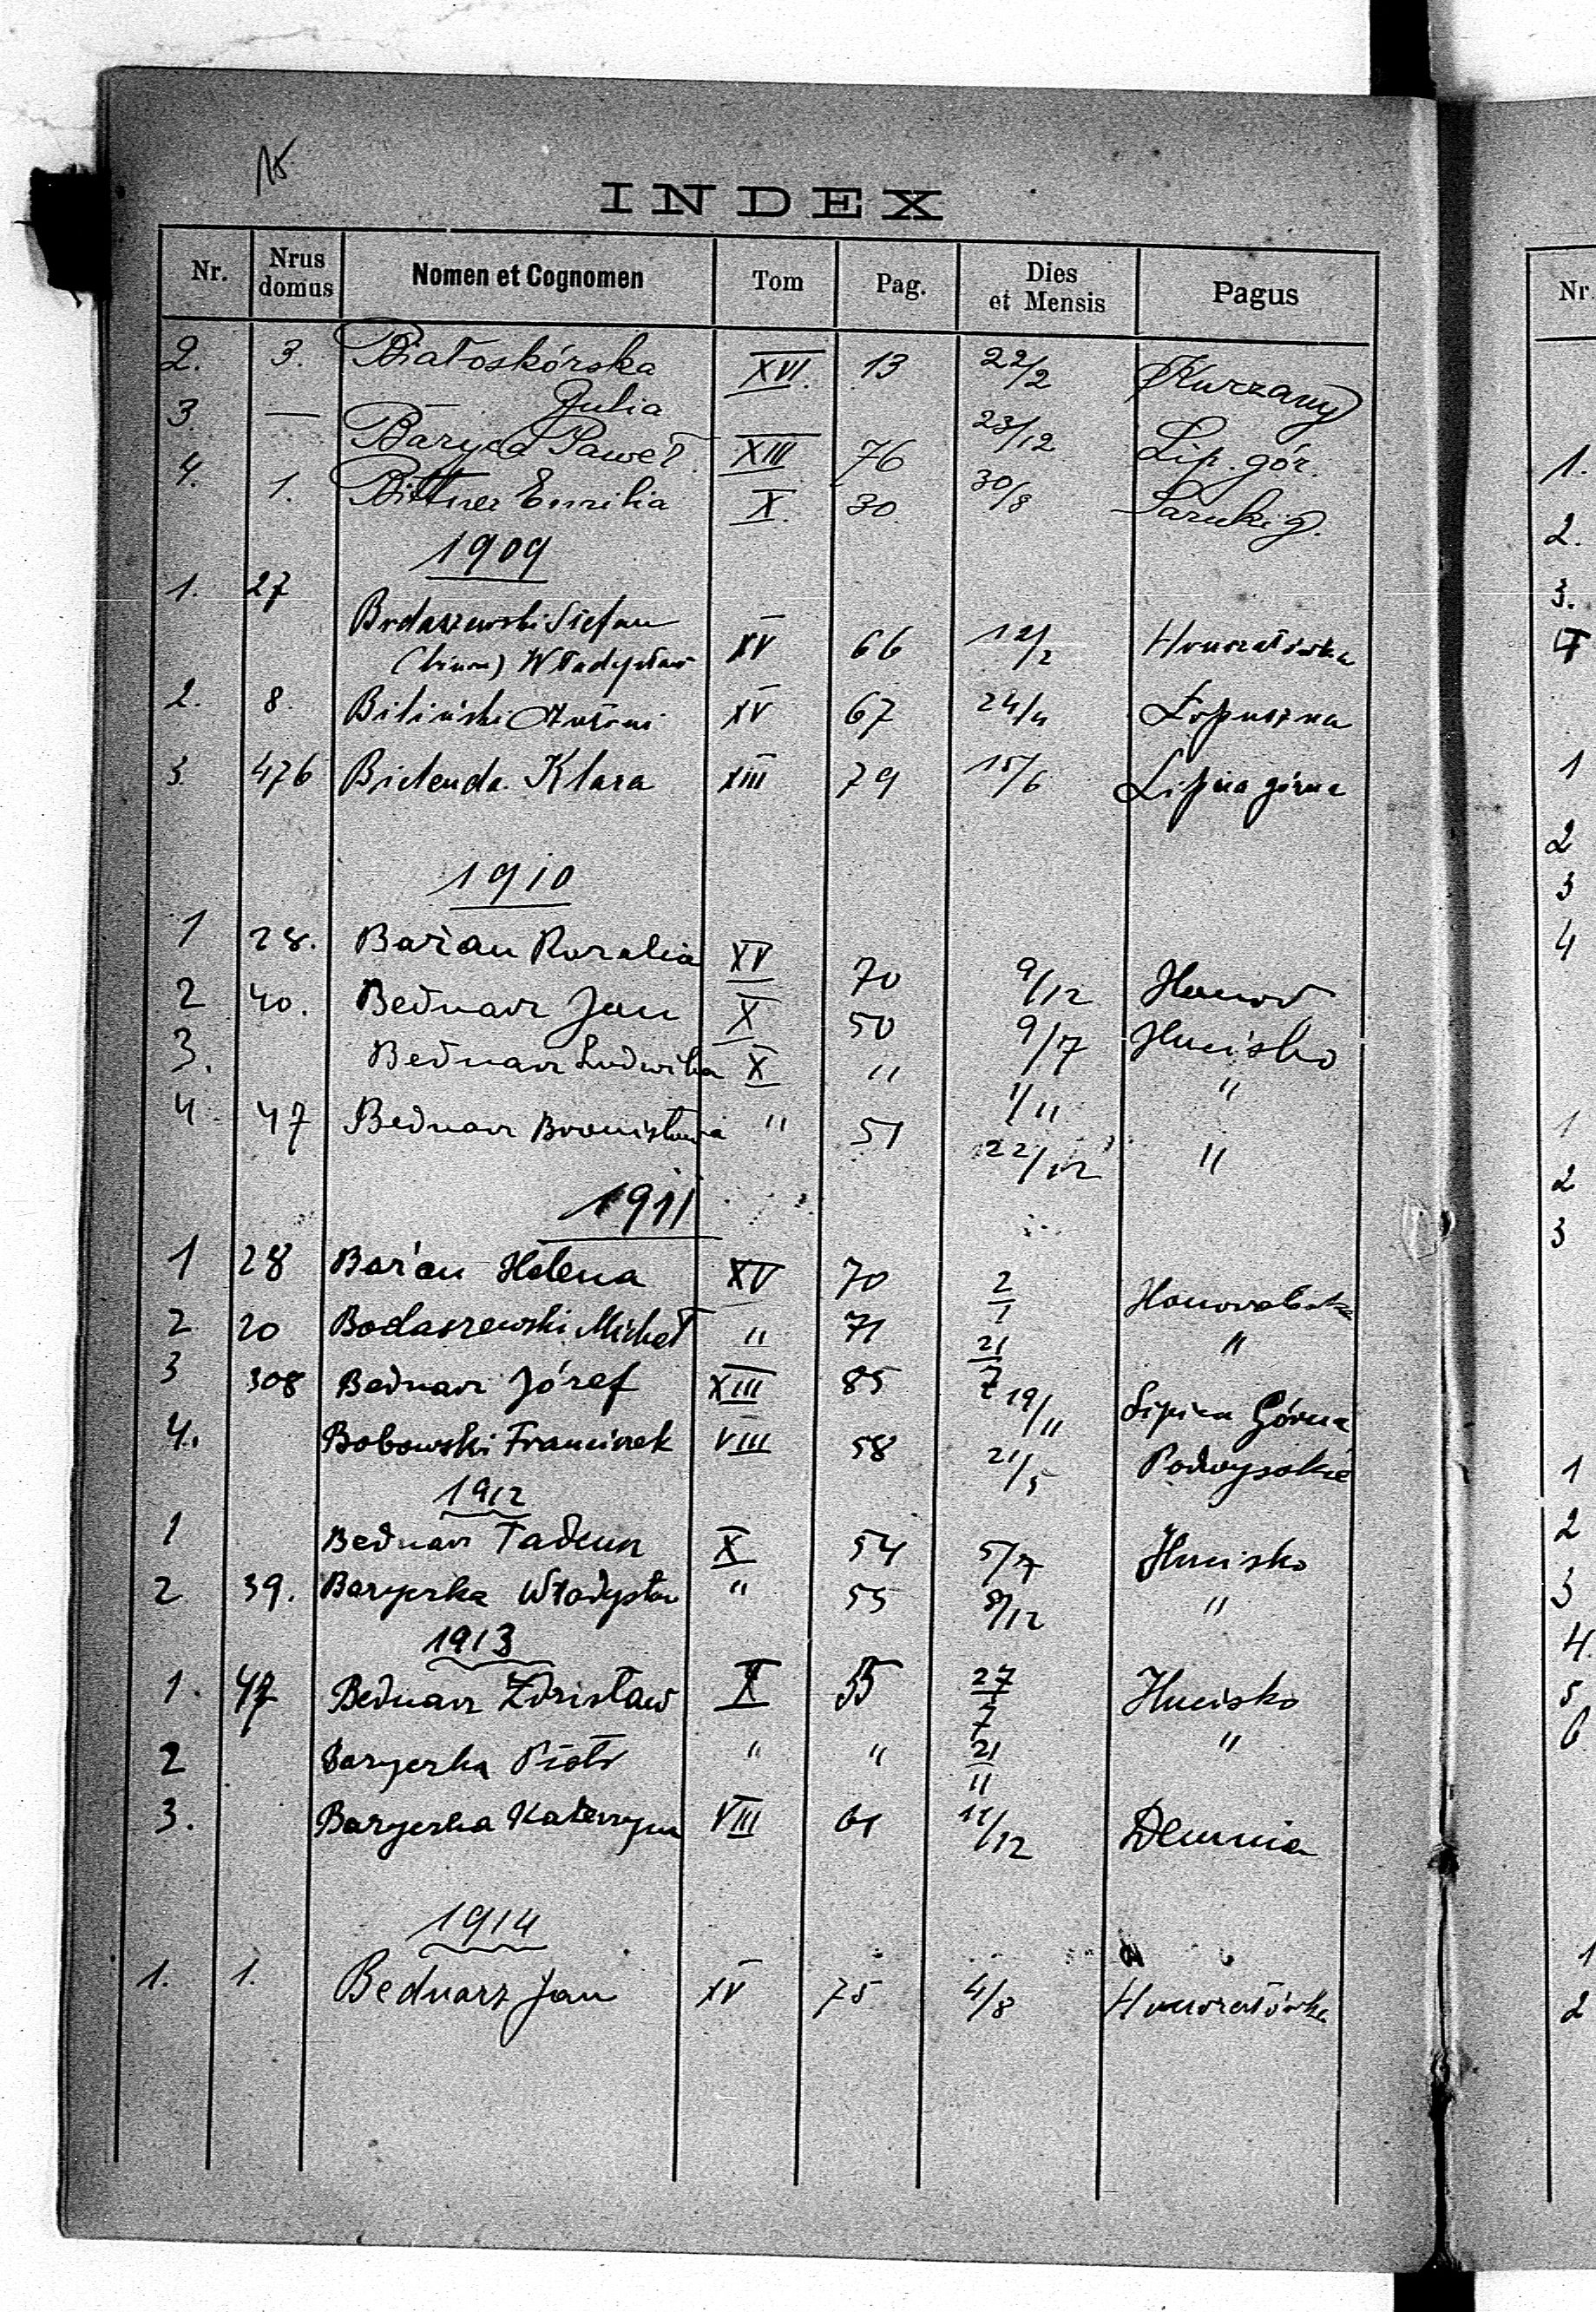 15
INDEX
Nr. Nrus domus Nomen et Cognomen Tom Pag. Dies et Mensis Pagus Nr
2. 3. Białoskórska Julia XVI. 13 22/2 Kurzany
3. — Baryła Paweł XIII 76 23/12 Lip. gór.
4. 1. Bittner Emilia X. 30. 30/8 Saruki g.
1909
1. 27 Bodaszewski Stefan
Władysław XV 66 12/2 Honoratówka
2. 8. Biliński Antoni XV 67 24/4 Łopuszna
3. 476 Bielenda Klara XIII 79 15/6 Lipica górna
1910
1 28. Bařan Rozalia XV 70 9/12 Honor
2 40. Bednarz Jan X 50 9/7 Hucisko
3. Bednarz Ludwika X " 1/11 "
4 47 Bednarz Bronisława " 51 22/12 "
1911
1 28 Bařan Helena XV 70 2/1
2 20 Bodaszewski Michał " 71 21/7 "
3 308 Bednarz Józef XIII 85 19/11 Lipica Górna
4. Bobowski Franciszek VIII 58 21/5 Podwysokie
1912
1 Bednarz Tadeusz X 54 5/7 Hucisko
2 39. Baryczka Władysław " 55 8/12 "
1913
1. 47 Bednarz Zdzisław X 55 27/7 Hucisko
2 Baryczka Piotr " " 21/11 "
3. Baryczka Katarzyna VIII 61 11/12 Demnia
1914
1. 1. Bednarz Jan XV 75 4/8 Honoratówka